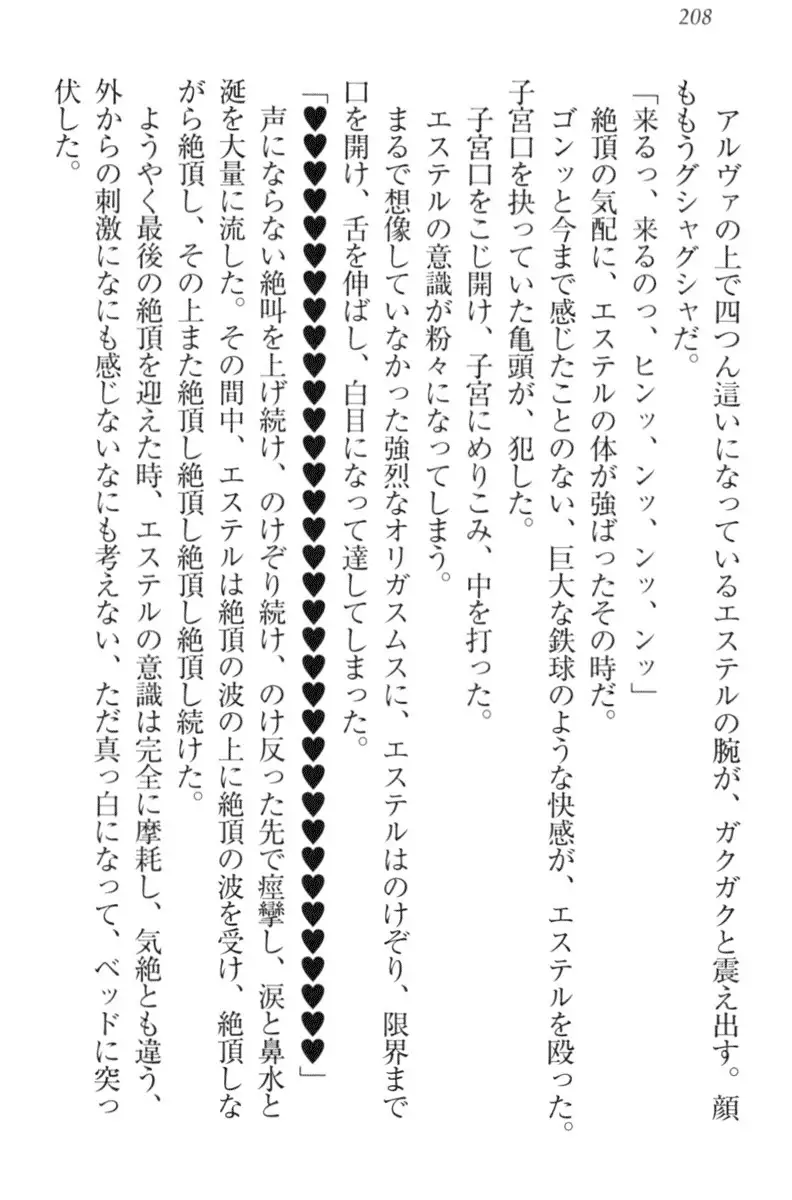 208
アルヴァの上で四つん這いになっているエステルの腕が、ガクガクと震え出す。顔
ももうグシャグシャだ。
「来るっ、来るのっ、ヒンッ、ンッ、ンッ、ンッ」
絶頂の気配に、エステルの体が強ばったその時だ。
ゴンッと今まで感じたことのない、巨大な鉄球のような快感が、エステルを殴った。
子宮口を抉っていた亀頭が、犯した。
子宮口をこじ開け、子宮にめりこみ、中を打った。
エステルの意識が粉々になってしまう。
まるで想像していなかった強烈なオリガスムスに、エステルはのけぞり、限界まで
口を開け、舌を伸ばし、白目になって達してしまった。
「♥♥♥♥♥♥♥♥♥♥♥♥♥♥♥♥♥♥♥♥♥♥♥♥♥♥♥♥♥♥♥♥♥♥♥」
声にならない絶叫を上げ続け、のけぞり続け、のけ反った先で痙攣し、涙と鼻水と
涎を大量に流した。その間中、エステルは絶頂の波の上に絶頂の波を受け、絶頂しな
がら絶頂し、その上また絶頂し絶頂し絶頂し絶頂し続けた。
ようやく最後の絶頂を迎えた時、エステルの意識は完全に摩耗し、気絶とも違う、
外からの刺激になにも感じないなにも考えない、ただ真っ白になって、ベッドに突っ
伏した。